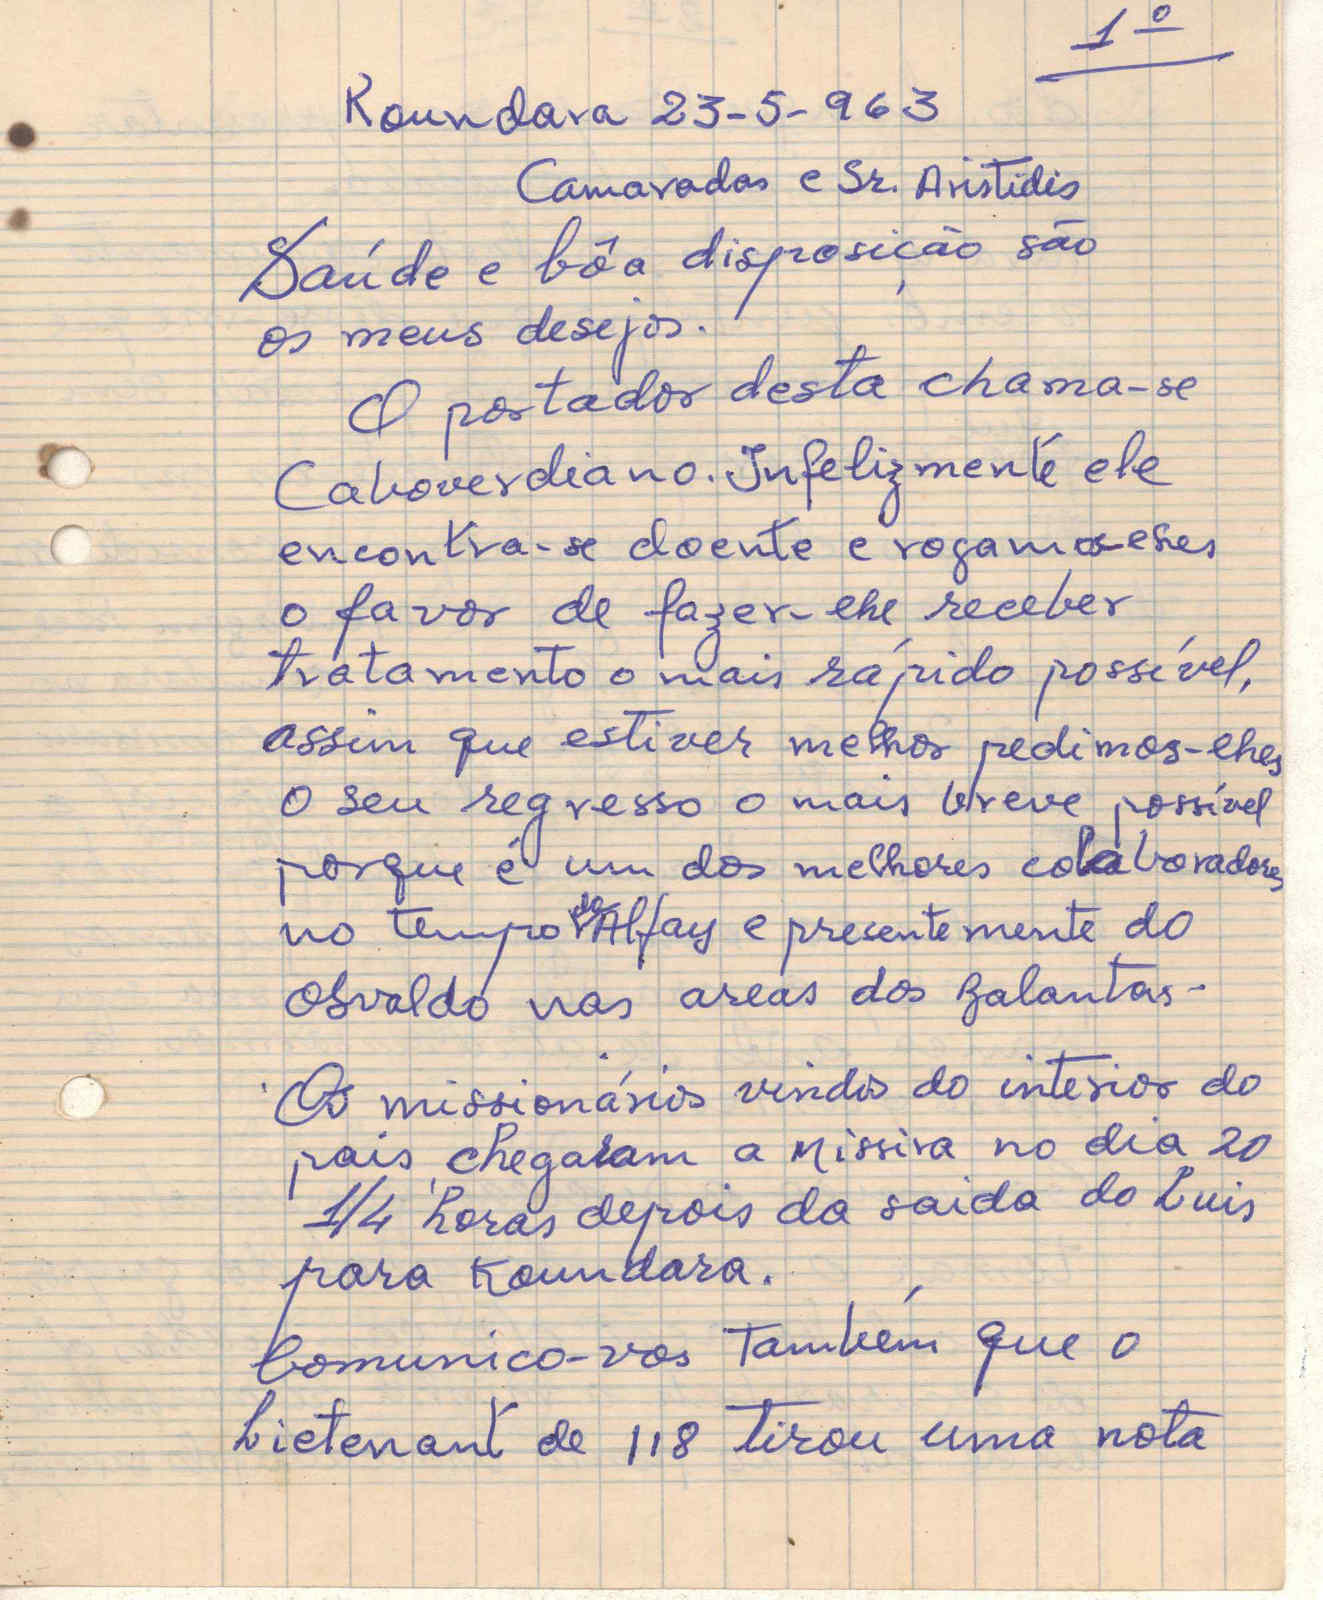 1º
Koundara 23-5-963
Camaradas e Sr. Aristidis
Saúde e bôa disposição são
os meus desejos.
O portador desta chama-se
Caboverdiano. Infelizmente ele
encontra-se doente e rogamos-lhes
o favor de fazer-lhe receber
tratamento o mais rápido possível,
assim que estiver melhor pedimos-lhes
o seu regresso o mais breve possível
porque é um dos melhores colaboradores
no tempo do Alfay e presentemente do
Osvaldo nas areas dos Balantas-
Os missionários vindos do interior do
pais, chegaram a Missira no dia 20
1/4 horas depois da saida do Luis
para Koundara.
Comunico-vos também que o
Lietenant de 118 tirou uma nota